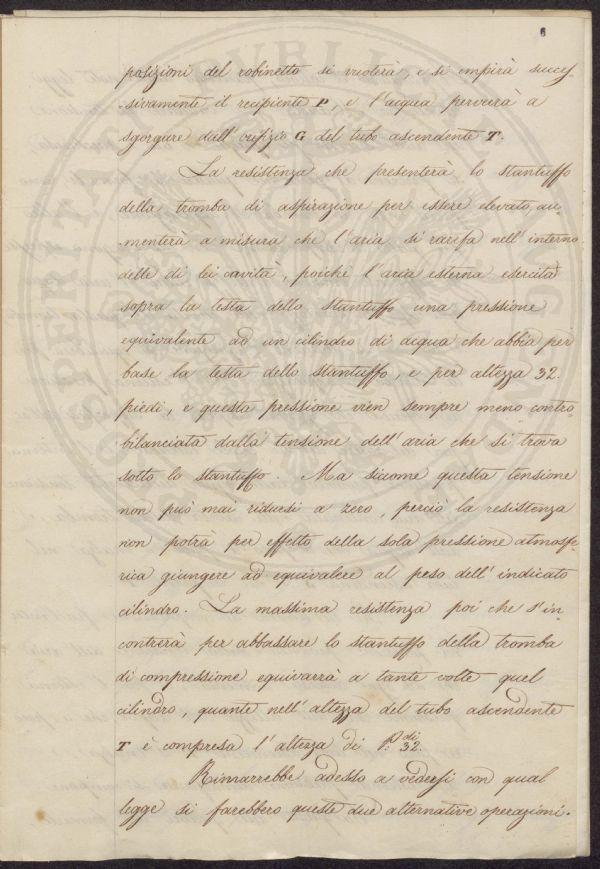 6
posizioni del robinetto si vuoterà, e si empirà succes-
-sivamente il recipiente P, e l'acqua perverrà a
sgorgare dall'orifizio G del tubo ascendente T.
La resistenza che presenterà lo stantuffo
della tromba di aspirazione per essere elevato, au-
-menterà a misura che l'aria si rarefa nell'interno
delle di lei cavità, poiché l'aria esterna esercita
sopra la testa dello stantuffo una pressione
equivalente ad un cilindro di acqua che abbia per
base la testa dello stantuffo, e per altezza 32.
piedi, e questa pressione vien sempre meno contro-
bilanciata dalla tensione dell'aria che si trova
sotto lo stantuffo. Ma siccome questa tensione
non può mai ridursi a zero, perciò la resistenza
non potrà per effetto della sola pressione atmosfe-
rica giungere ad equivalere al peso dell'indicato
cilindro. La massima resistenza poi che s'in-
contrerà per abbassare lo stantuffo della tromba
di compressione equivarrà a tante volte quel
cilindro, quante nell'altezza del tubo ascendente
T è compresa l'altezza di p.di 32.
Rimarrebbe adesso a vedersi con qual
legge si farebbero queste due alternative operazioni.